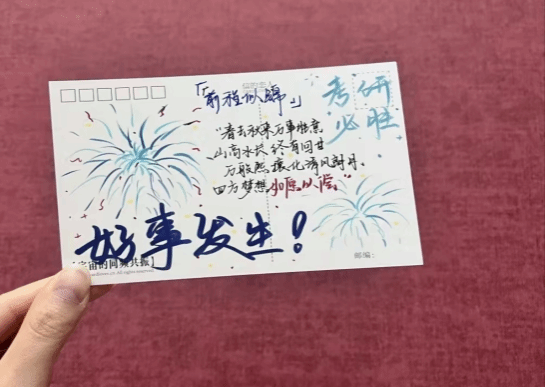 「前程似锦」
考研
必胜
"春去秋来万事胜意
山高水长 终有回甘
万般熬遍化清风朗月
四方梦想 如愿以偿"
好事发生！
宇宙的同频共振】
All rights reserved.
邮编：